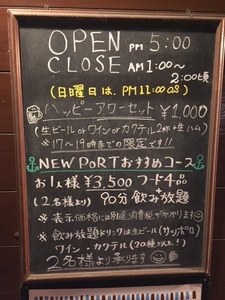 OPEN PM 5:00
CLOSE AM 1:00〜
2:00頃
(日曜日は、PM 11:00
ハッピーアワーセット ¥1,000
(生ビール or ワイン or カクテル2杯+生ハム)
※17〜19時までの限定です!!
NEW PORT おすすめコース
お1人様 ¥3,500 フード4品
(2名様より) 90分飲み放題
※表示価格には別途消費税がかかります
※飲み放題ドリンクは生ビール(サッポロ)
ワイン・カクテル(20種以上!)
2名様より承ります